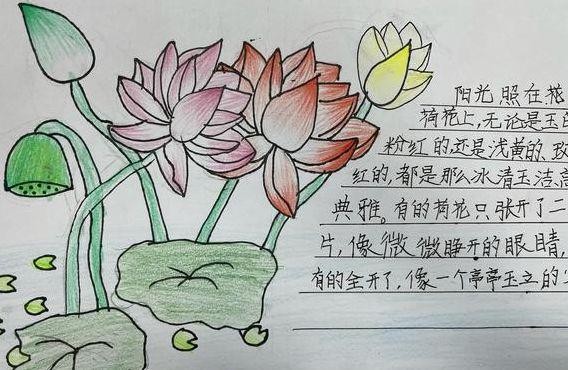 阳光照在荷
荷花上,无论是玉白
粉红的还是浅黄的、玫
红的,都是那么冰清玉洁、高
典雅。有的荷花只张开了二
片,像微微睁开的眼睛,
有的全开了,像一个亭亭玉立的少